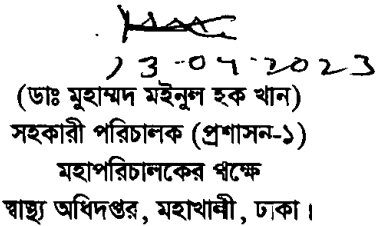 13-04-2023
(ডাঃ মুহাম্মদ মইনুল হক খান)
সহকারী পরিচালক (প্রশাসন-১)
মহাপরিচালকের পক্ষে
স্বাস্থ্য অধিদপ্তর, মহাখালী, ঢাকা।